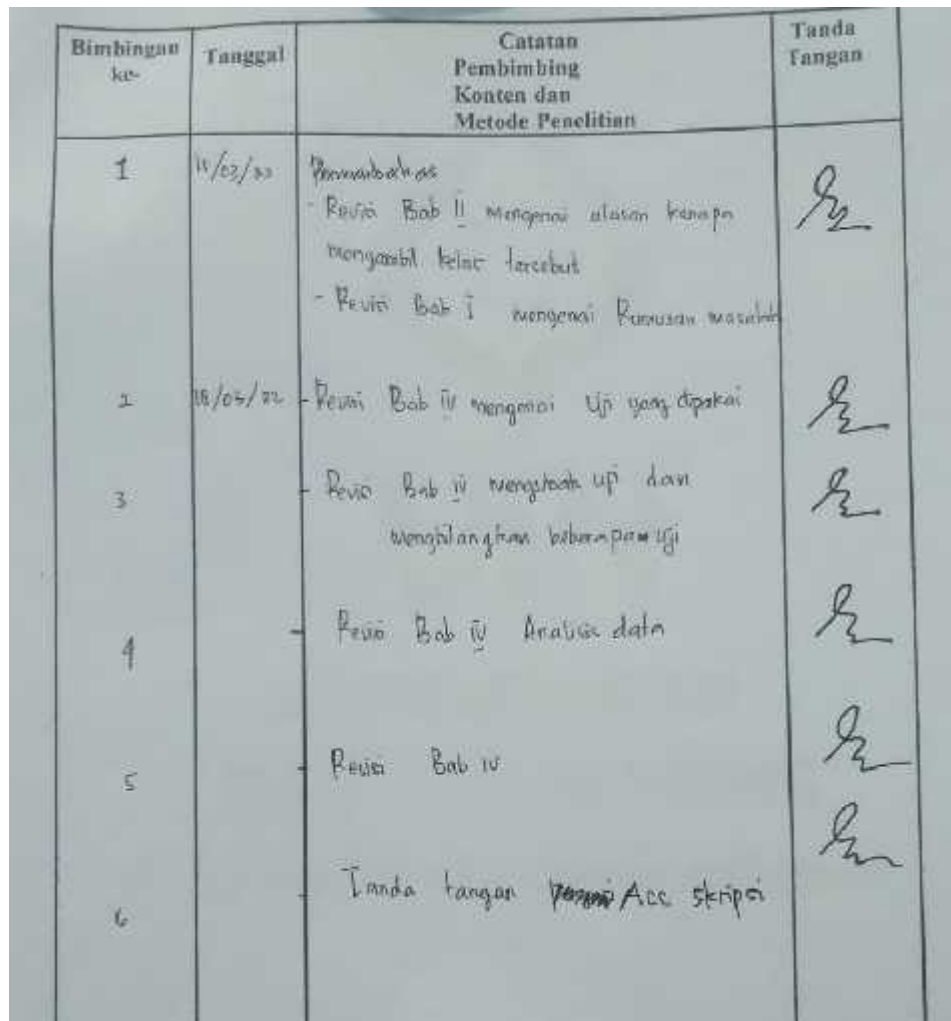 Bimbingan ke- Tanggal Catatan Pembimbing Konten dan Metode Penelitian Tanda Tangan
1
- Revisi Bab II Mengenai alasan kenapa
mengambil kelas tersebut
- Revisi Bab I mengenai Rumusan masalah
2 - Revisi Bab IV mengenai Uji yang dipakai
3 - Revisi Bab IV uji dan
menghilangkan beberapa uji
4 - Revisi Bab IV Analisis data
5 - Revisi Bab IV
6 - Tanda tangan Acc skripsi